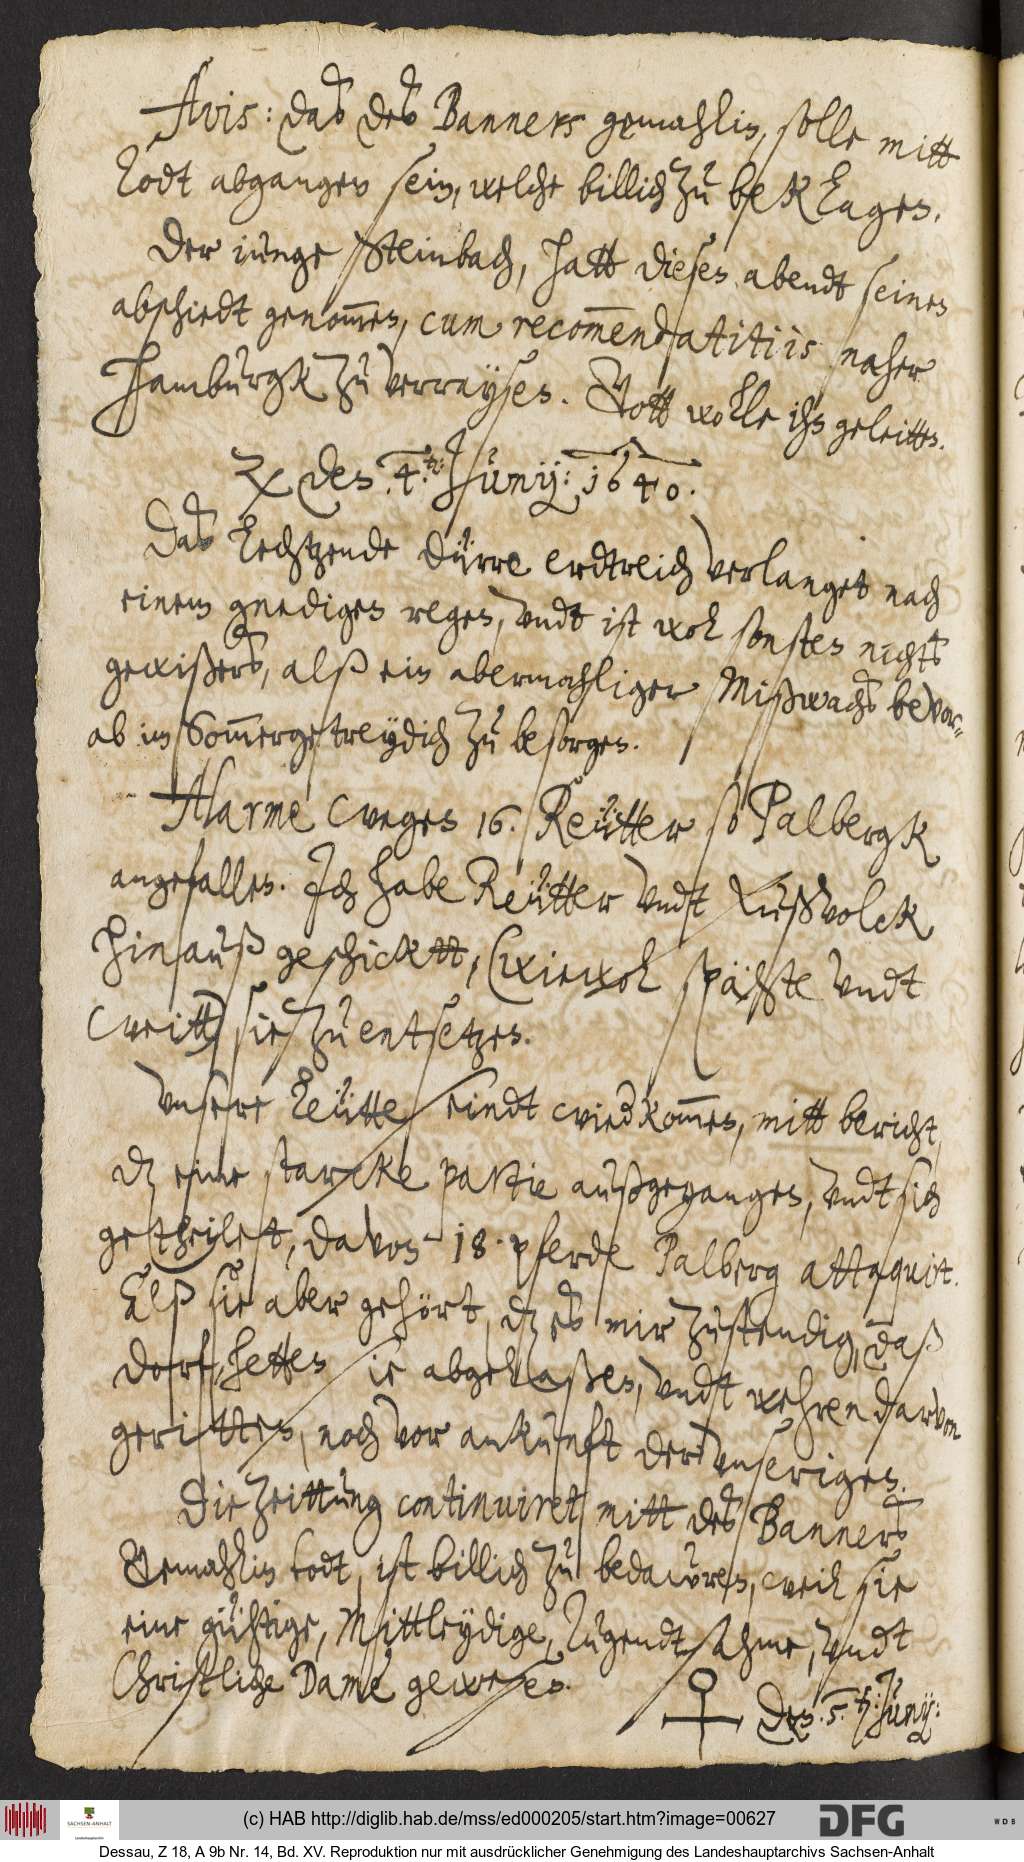 Avis: das des Banners gemahlin, solle mitt
Todt abgangen sein, welche billich zu beklagen.
Der iunge Steinbach, hatt diesen abendt seinen
abschiedt genom̅en, cum recom̅endatitiis naher
Hamburgk zu verraysen. Gott wolle ihn geleitten.
♃ den 4.ten: Junij: 1640.
Das lechtzende dürre erdtreich verlanget nach
einem gnedigen regen, undt ist wol sonsten nichts
gewißers, alß ein abermahliger Mißwachß bevor-
ab im Som̅ergetreydich zu besorgen.
Alarme wegen 16. Reütter so Palbergk
angefallen. Ich habe Reütter undt Fußvolck
hinauß geschicktt, (wiewol späht undt
weitt) sie zu entsetzen.
Unsere leütte seindt wiedkom̅en, mitt bericht,
dz eine starcke partie außgegangen, undt sich
getheilet, davon 18. pferde Palberg attaquirt.
Alß sie aber gehört, dz es mir zustendig, daß
dorf, hetten sie abgelaßen, undt wehren darvon
geritten, noch vor ankunft der unserigen.
Die Zeittung continuiret mitt des Banners
Gemahlin todt, ist billich zu bedauren, weil sie
eine gühtige, Mittleydige, Tugendtsahme, undt
Christliche Dame gewesen.
♀ den 5.ten: Junij:
(c) HAB http://diglib.hab.de/mss/ed000205/start.htm?image=00627
SACHSEN-ANHALT
DFG
WDB
Dessau, Z 18, A 9b Nr. 14, Bd. XV. Reproduktion nur mit ausdrücklicher Genehmigung des Landeshauptarchivs Sachsen-Anhalt